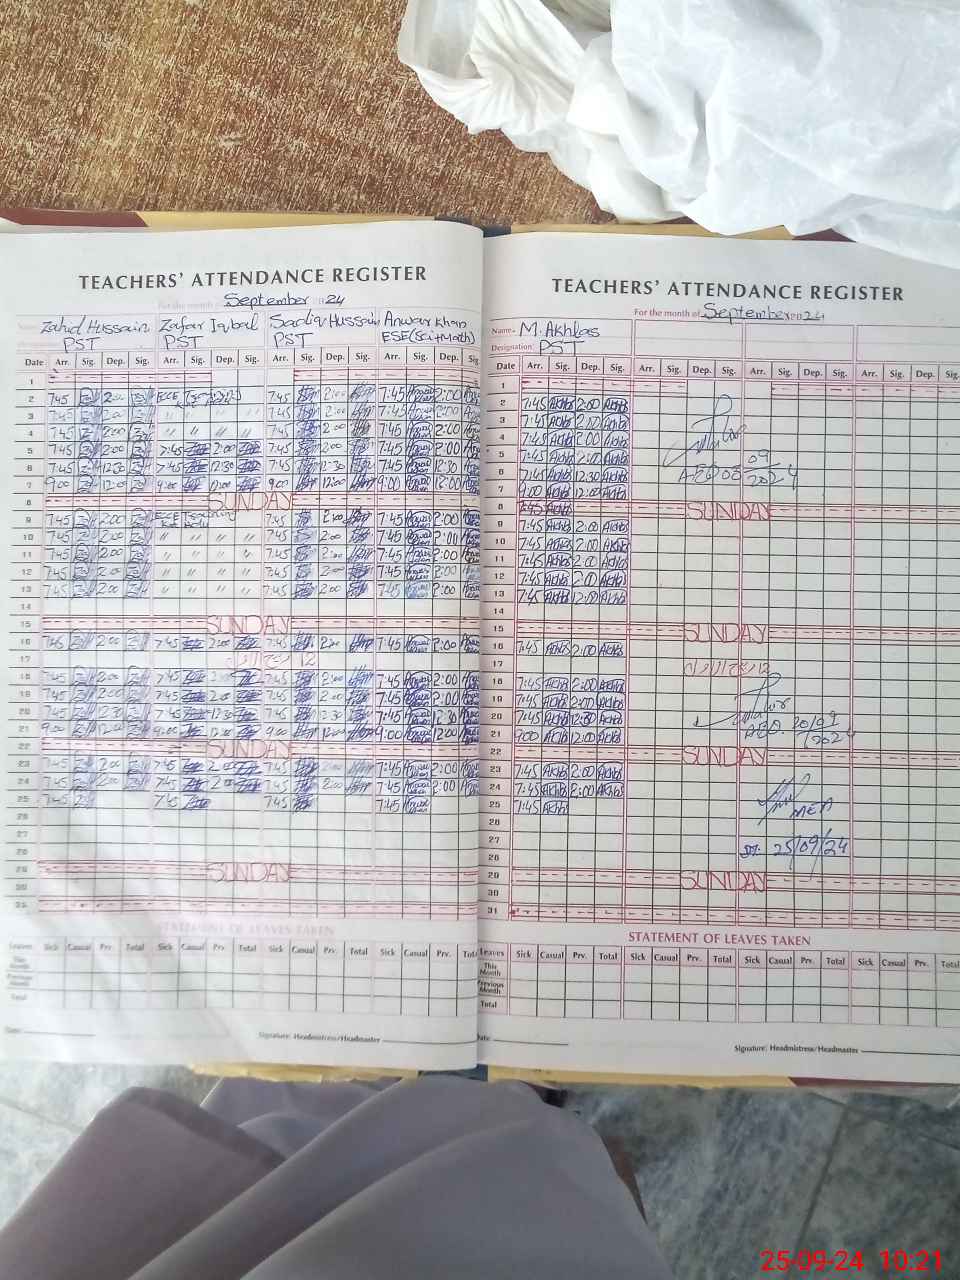 TEACHERS' ATTENDANCE REGISTER
For the month of September 2024
Zahid Hussain Zafar Iqbal Sadiq Hussain Anwar Khan
PST PST PST ESE(Sci+Math)
Date Arr. Sig. Dep. Sig. Arr. Sig. Dep. Sig. Arr. Sig. Dep. Sig. Arr. Sig. Dep. Sig.
1
2 7:45 2:00 ECE 7:45 2:00 7:45 2:00
3 7:45 2:00 " " " " 7:45 2:00 7:45 2:00
4 7:45 2:00 " " " " 7:45 2:00 7:45 2:00
5 7:45 2:00 7:45 2:00 7:45 2:00 7:45 2:00
6 7:45 12:30 7:45 12:30 7:45 12:30 7:45 12:30
7 9:00 12:00 9:00 12:00 9:00 12:00 9:00 12:00
8 SUNDAY
9 7:45 2:00 ECE 7:45 2:00 7:45 2:00
10 7:45 2:00 " " " " 7:45 2:00 7:45 2:00
11 7:45 2:00 " " " " 7:45 2:00 7:45 2:00
12 7:45 2:00 " " " " 7:45 2:00 7:45 2:00
13 7:45 2:00 " " " " 7:45 2:00 7:45 2:00
14
15 SUNDAY
16 7:45 2:00 7:45 2:00 7:45 2:00 7:45 2:00
17 12 ربیع الاول
18 7:45 2:00 7:45 7:45 2:00 7:45 2:00
19 7:45 2:00 7:45 2:00 7:45 2:00 7:45 2:00
20 7:45 12:30 7:45 12:30 7:45 12:30 7:45 12:30
21 9:00 12:00 9:00 12:00 9:00 12:00 9:00 12:00
22 SUNDAY
23 7:45 2:00 7:45 2:00 7:45 2:00 7:45 2:00
24 7:45 2:00 7:45 2:00 7:45 2:00 7:45 2:00
25 7:45 7:45 7:45 7:45
26
27
28
29 SUNDAY
30
31
STATEMENT OF LEAVES TAKEN
Leaves Sick Casual Prv. Total Sick Casual Prv. Total Sick Casual Prv. Total Sick Casual Prv. Total
This Month
Previous Month
Total
Date:
Signature: Headmistress/Headmaster
TEACHERS' ATTENDANCE REGISTER
For the month of September 2024
Name. M. Akhlas
Designation: PST
Date Arr. Sig. Dep. Sig. Arr. Sig. Dep. Sig. Arr. Sig. Dep. Sig. Arr. Sig. Dep. Sig.
1
2 7:45 Akhls 2:00 Akhls
3 7:45 Akhls 2:00 Akhls
4 7:45 Akhls 2:00 Akhls
5 7:45 Akhls 2:00 Akhls 09
6 7:45 Akhls 12:30 Akhls AEO 08 2024
7 9:00 Akhls 12:00 Akhls
8 7:45 Akhls SUNDAY
9 7:45 Akhls 2:00 Akhls
10 7:45 Akhls 2:00 Akhls
11 7:45 Akhls 2:00 Akhls
12 7:45 Akhls 2:00 Akhls
13 7:45 Akhls 12:00 Akhls
14
15 SUNDAY
16 7:45 Akhls 2:00 Akhls
17 12 ربیع الاول
18 7:45 Akhls 2:00 Akhls
19 7:45 Akhls 2:00 Akhls
20 7:45 Akhls 12:30 Akhls AEO. 20/09
21 9:00 Akhls 12:00 Akhls 2024
22 SUNDAY
23 7:45 Akhls 2:00 Akhls
24 7:45 Akhls 2:00 Akhls
25 7:45 Akhls MEA
26
27 Dt: 25/09/24
28
29 SUNDAY
30
31
STATEMENT OF LEAVES TAKEN
Leaves Sick Casual Prv. Total Sick Casual Prv. Total Sick Casual Prv. Total Sick Casual Prv. Total
This Month
Previous Month
Total
Date:
Signature: Headmistress/Headmaster
25-09-24 10:21